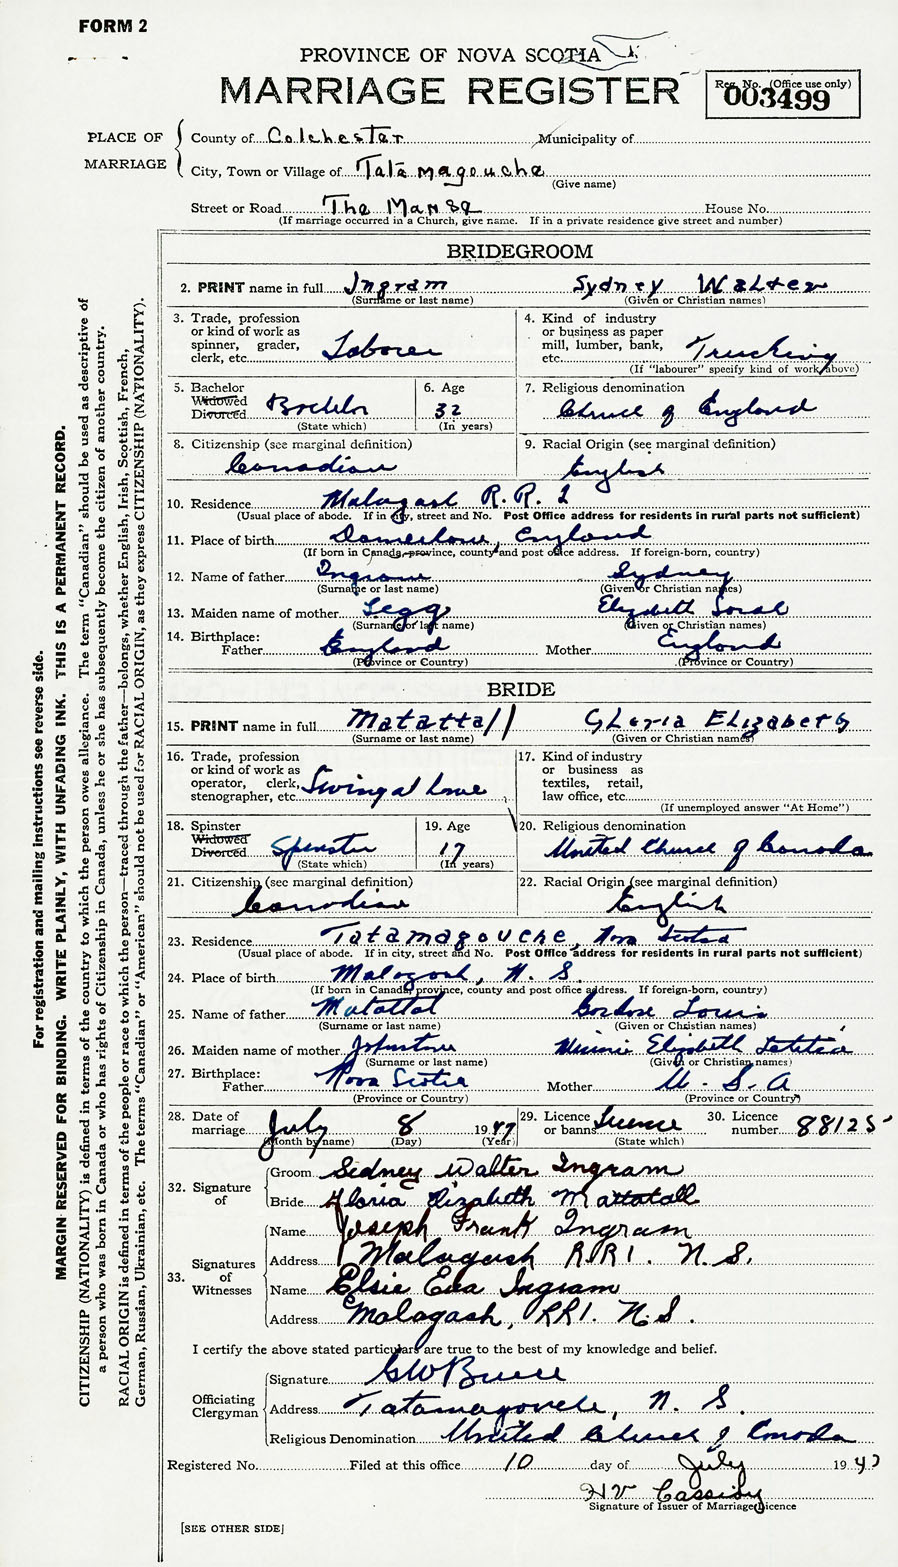 FORM 2
PROVINCE OF NOVA SCOTIA
MARRIAGE REGISTER
Reg. No. (Office use only)
003499
PLACE OF MARRIAGE
County of Colchester Municipality of
City, Town or Village of Tatamagouche
(Give name)
Street or Road The Manse House No.
(If marriage occurred in a Church, give name. If in a private residence give street and number)
BRIDEGROOM
2. PRINT name in full Ingram Sydney Walter
(Surname or last name) (Given or Christian names)
3. Trade, profession or kind of work as spinner, grader, clerk, etc. Laborer
4. Kind of industry or business as paper mill, lumber, bank, etc. Trucking
(If "labourer" specify kind of work above)
5. Bachelor Widowed Divorced Bachelor
(State which)
6. Age 32
(In years)
7. Religious denomination Church of England
8. Citizenship (see marginal definition) Canadian
9. Racial Origin (see marginal definition) English
10. Residence Malagash R. R. 1
(Usual place of abode. If in city, street and No. Post Office address for residents in rural parts not sufficient)
11. Place of birth England
(If born in Canada, province, county and post office address. If foreign-born, country)
12. Name of father Ingram Sydney
(Surname or last name) (Given or Christian names)
13. Maiden name of mother Legg Elizabeth Sarah
(Surname or last name) (Given or Christian names)
14. Birthplace:
Father England Mother England
(Province or Country) (Province or Country)
BRIDE
15. PRINT name in full Matattall GLoria ELizabeth
(Surname or last name) (Given or Christian names)
16. Trade, profession or kind of work as operator, clerk, stenographer, etc. Living at home
17. Kind of industry or business as textiles, retail, law office, etc.
(If unemployed answer "At Home")
18. Spinster Widowed Divorced Spinster
(State which)
19. Age 17
(In years)
20. Religious denomination United Church of Canada
21. Citizenship (see marginal definition) Canadian
22. Racial Origin (see marginal definition) English
23. Residence Tatamagouche, Nova Scotia
(Usual place of abode. If in city, street and No. Post Office address for residents in rural parts not sufficient)
24. Place of birth Malagash, N. S.
(If born in Canada, province, county and post office address. If foreign-born, country)
25. Name of father Matattal Gordon Louis
(Surname or last name) (Given or Christian names)
26. Maiden name of mother Johnstone Minnie Elizabeth Letitia
(Surname or last name) (Given or Christian names)
27. Birthplace:
Father Nova Scotia Mother U. S. A
(Province or Country) (Province or Country)
28. Date of marriage July 8 1947
(Month by name) (Day) (Year)
29. Licence or banns Licence
(State which)
30. Licence number 88125
32. Signature of
Groom Sidney Walter Ingram
Bride Gloria Elizabeth Mattatall
33. Signatures of Witnesses
Name Joseph Frank Ingram
Address Malagash RR1. N. S.
Name Elsie Eva Ingram
Address Malagash, RR1. N.S.
I certify the above stated particulars are true to the best of my knowledge and belief.
Officiating Clergyman
Signature GW
Address Tatamagouche, N. S.
Religious Denomination United Church of Canada
Registered No. Filed at this office 10 day of July 1947
HV Cassidy
Signature of Issuer of Marriage Licence
[SEE OTHER SIDE]
For registration and mailing instructions see reverse side.
MARGIN RESERVED FOR BINDING. WRITE PLAINLY, WITH UNFADING INK. THIS IS A PERMANENT RECORD.
CITIZENSHIP (NATIONALITY) is defined in terms of the country to which the person owes allegiance. The term "Canadian" should be used as descriptive of
a person who was born in Canada or who has rights of Citizenship in Canada, unless he or she has subsequently become the citizen of another country.
RACIAL ORIGIN is defined in terms of the people or race to which the person—traced through the father—belongs, whether English, Irish, Scottish, French,
German, Russian, Ukrainian, etc. The terms "Canadian" or "American" should not be used for RACIAL ORIGIN, as they express CITIZENSHIP (NATIONALITY).